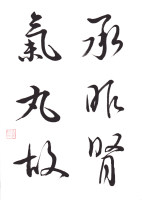 承服腎
氣丸故